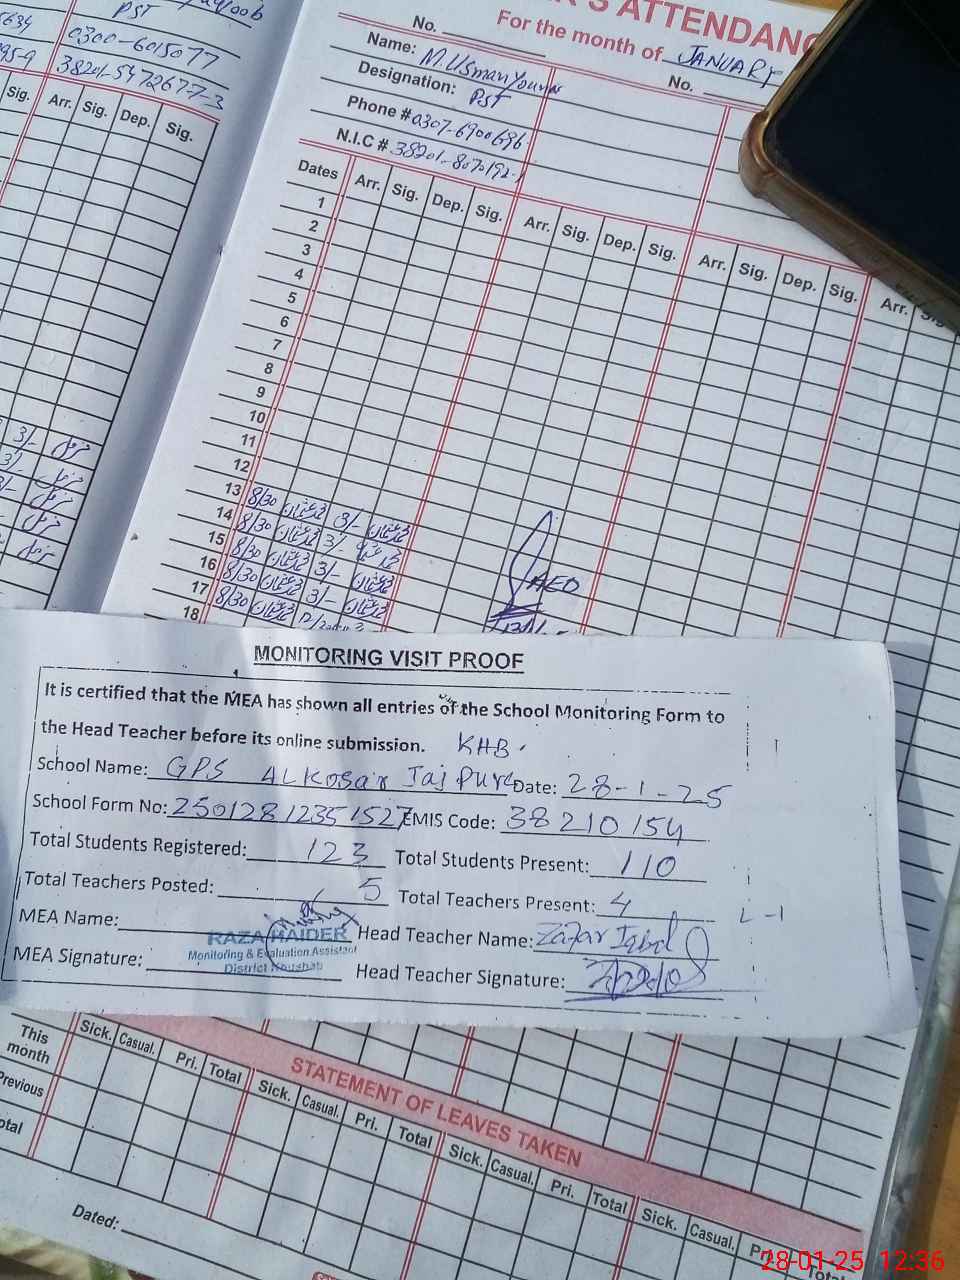 PST
0300-6015077
38201-5472677-3
Sig. Arr. Sig. Dep. Sig.
'S ATTENDANC
For the month of JANUARY
No.
Name: M Usman Younas
Designation: PST
Phone # 0307-6900696
N.I.C # 38201-8070192-1
No.
Dates Arr. Sig. Dep. Sig. Arr. Sig. Dep. Sig. Arr. Sig. Dep. Sig. Arr.
1
2
3
4
5
6
7
8
9
10
11
12
13 8/30 3/-
14 8/30 3/-
15 8/30 3/-
16 8/30 3/-
17 8/30
18
AEO
MONITORING VISIT PROOF
It is certified that the MEA has shown all entries of the School Monitoring Form to
the Head Teacher before its online submission. KHB.
School Name: GPS ALKOSAR Jaj Pure Date: 28-1-25
School Form No: 25012812351527 EMIS Code: 38210154
Total Students Registered: 123 Total Students Present: 110
Total Teachers Posted: 5 Total Teachers Present: 4 L-1
MEA Name: Head Teacher Name: Zafar Iqbal
RAZA HAIDER
Monitoring & Evaluation Assistant
District Khushab
MEA Signature: Head Teacher Signature:
This month Sick. Casual. Pri. Total
Previous
STATEMENT OF LEAVES TAKEN
Sick. Casual. Pri. Total Sick. Casual. Pri. Total Sick. Casual.
Dated:
28-01-25 12:36